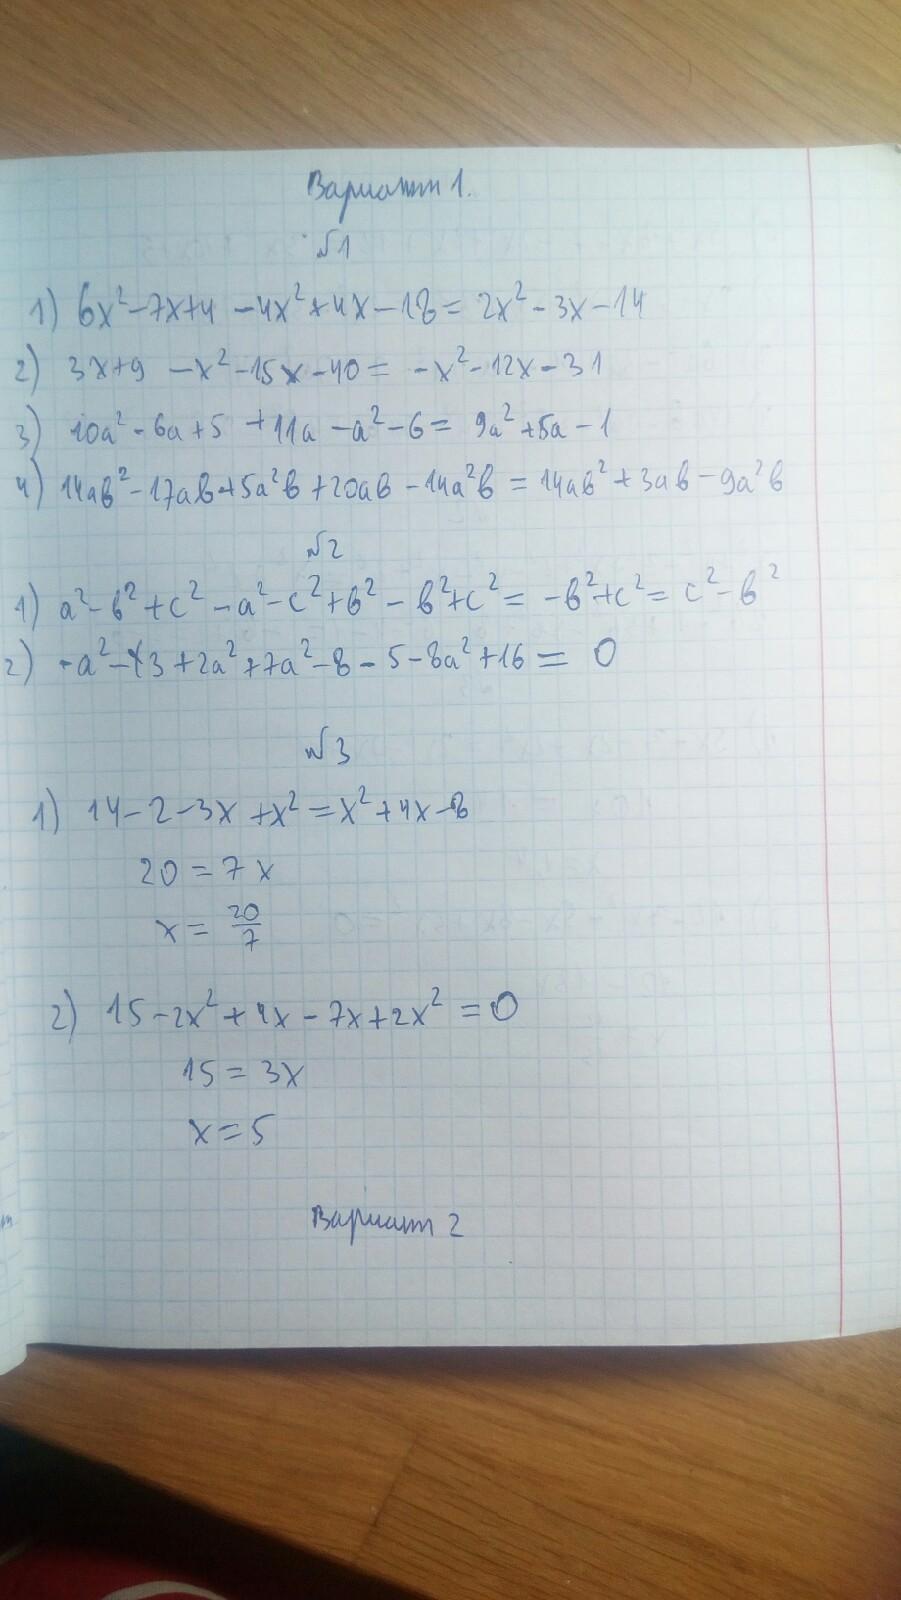 Вариант 1.
№1
1) 6x² - 7x + 4 - 4x² + 4x - 18 = 2x² - 3x - 14
2) 3x + 9 - x² - 15x - 40 = -x² - 12x - 31
3) 10a² - 6a + 5 + 11a - a² - 6 = 9a² + 5a - 1
4) 14ab² - 17ab + 5a²b + 20ab - 14a²b = 14ab² + 3ab - 9a²b
№2
1) a² - b² + c² - a² - c² + b² - b² + c² = -b² + c² = c² - b²
2) -a² - 3 + 2a² + 7a² - 8 - 5 - 8a² + 16 = 0
№3
1) 14 - 2 - 3x + x² = x² + 4x - 8
20 = 7x
x = 20/7
2) 15 - 2x² + 4x - 7x + 2x² = 0
15 = 3x
x = 5
Вариант 2